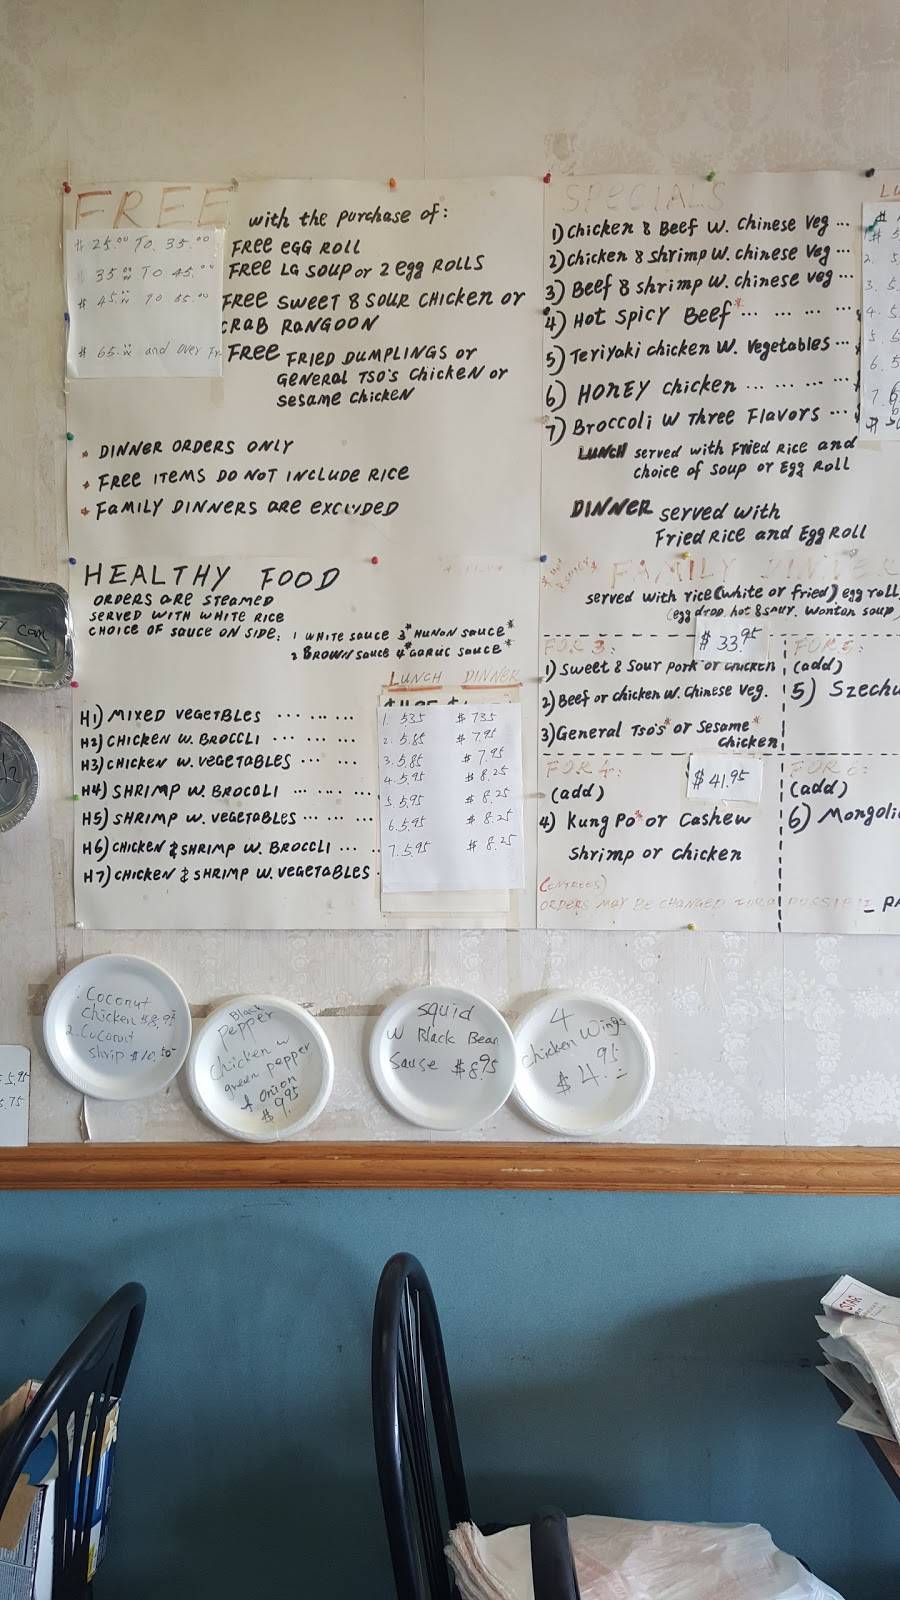 FREE with the purchase of:
$ 25.00 TO 35.00 FREE EGG ROLL
35.00 TO 45.00 FREE LG SOUP or 2 EGG ROLLS
$ 45.00 TO 65.00 FREE SWEET & SOUR CHICKEN or
CRAB RANGOON
$ 65.00 and over FREE FRIED DUMPLINGS or
GENERAL TSO'S CHICKEN or
SESAME CHICKEN
* DINNER ORDERS ONLY
* FREE ITEMS DO NOT INCLUDE RICE
* FAMILY DINNERS ARE EXCLUDED
SPECIALS
1) Chicken & Beef W. Chinese Veg ...
2) Chicken & shrimp W. chinese veg ...
3) Beef & shrimp W. chinese veg ...
4) Hot Spicy Beef* ... ... ...
5) Teriyaki chicken W. Vegetables ...
6) HONEY chicken ... ... ... ...
7) Broccoli W Three Flavors ...
LUNCH served with Fried Rice and
choice of soup or Egg Roll
DINNER served with
Fried Rice and Egg Roll
HEALTHY FOOD
ORDERS ARE STEAMED
SERVED WITH WHITE RICE
CHOICE OF SAUCE ON SIDE: 1 WHITE SAUCE 3* HUNON SAUCE*
2 BROWN SAUCE 4* GARLIC SAUCE*
LUNCH DINNER
H1) MIXED VEGETBLES ... ... ... 1. 5.35 $ 7.35
H2) CHICKEN W. BROCCLI ... ... ... 2. 5.85 $ 7.95
H3) CHICKEN W. VEGETABLES ... ... 3. 5.85 $ 7.95
H4) SHRIMP W. BROCOLI ... ... ... 4. 5.95 $ 8.25
H5) SHRIMP W. VEGETABLES ... ... 5. 5.95 $ 8.25
H6) CHICKEN & SHRIMP W. BROCCLI ... 6. 5.95 $ 8.25
H7) CHICKEN & SHRIMP W. VEGETABLES . 7. 5.95 $ 8.25
FAMILY DINNER
served with rice (white or fried) egg roll
(egg drop, hot & sour, wonton soup)
FOR 3: $ 33.95
1) Sweet & Sour Pork or chicken
2) Beef or chicken W. Chinese Veg.
3) General Tso's* or Sesame*
chicken
FOR 5:
(add)
5) Szechu
FOR 4: $ 41.95
(add)
4) Kung Po* or Cashew
Shrimp or chicken
FOR 6:
(add)
6) Mongoli
(ENTREES)
ORDERS MAY BE CHANGED
1. Coconut
chicken $8.95
2. Coconut
shrip $10.50
Black
pepper
Chicken w
green pepper
& Onion
$ 9.95
squid
w Black Bean
Sause $8.95
4
chicken wings
$ 4.95
5.95
5.75
STAR